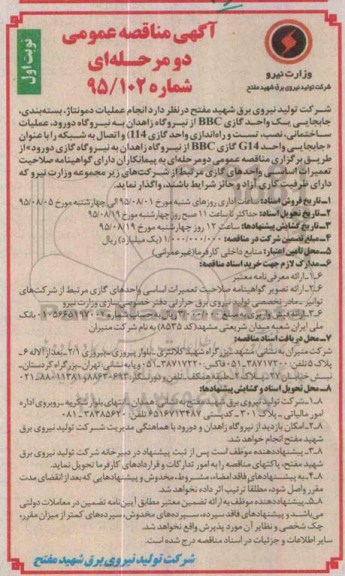 آگهی مناقصه عمومی
دو مرحله‌ای
شماره ۹۵/۱۰۲
نوبت اول
وزارت نیرو
شرکت تولید نیروی برق شهید مفتح
شرکت تولید نیروی برق شهید مفتح در نظر دارد انجام عملیات دمونتاژ، بسته‌بندی،
جابجایی یک واحد گازی BBC از نیروگاه زاهدان به نیروگاه دورود، عملیات
ساختمانی، نصب، تست و راه‌اندازی واحد گازی و اتصال به شبکه را با عنوان
«جابجایی واحد G14 گازی BBC از نیروگاه زاهدان به نیروگاه گازی دورود» از
طریق برگزاری مناقصه عمومی دو مرحله‌ای به پیمانکاران دارای گواهینامه صلاحیت
تعمیرات اساسی واحدهای گازی مرتبط از شرکت‌های زیر مجموعه وزارت نیرو که
دارای ظرفیت کاری آزاد و حائز شرایط باشند، واگذار نماید.
۱ـ تاریخ فروش اسناد: ساعات اداری روزهای شنبه مورخ ۹۵/۰۸/۰۱ الی چهارشنبه مورخ ۹۵/۰۸/۰۵
۲ـ تاریخ تحویل اسناد: حداکثر تا ساعت ۱۱ صبح روز چهارشنبه مورخ ۹۵/۰۸/۱۹
۳ـ تاریخ گشایش پیشنهادها: ساعت ۱۲ روز چهارشنبه مورخ ۹۵/۰۸/۱۹
۴ـ مبلغ تضمین شرکت در مناقصه: ۱/۰۰۰/۰۰۰/۰۰۰ (یک میلیارد) ریال
۵ـ محل تأمین اعتبار: منابع داخلی کارفرما (غیرعمرانی)
۶ـ مدارک لازم جهت خرید اسناد مناقصه:
۶ـ۱ـ ارائه معرفی‌نامه معتبر
۶ـ۲ـ ارائه تصویر گواهینامه صلاحیت تعمیرات اساسی واحدهای گازی مرتبط از شرکت‌های
توانیر ـ مادر تخصصی تولید نیروی برق حرارتی دفتر خصوصی‌سازی وزارت نیرو
۶ـ۳ـ ارائه فیش واریزی به مبلغ ریال به حساب شماره بانک
ملی ایران شعبه میدان شریعتی مشهد (کد ۸۵۲۵) به نام شرکت منیران
۷ـ محل دریافت اسناد مناقصه:
شرکت منیران به نشانی: مشهد ـ بزرگراه شهید کلانتری ـ بلوار پیروزی ـ پیروزی
پلاک تلفن: ۳۸۷۱۷۲۰۰ـ۰۵۱ فاکس: ۰۵۱ و یا به نشانی: تهران ـ بزرگراه کردستان ـ
طبقه همکف ـ تلفن و دورنگار:
۸ـ محل تحویل اسناد و گشایش پیشنهادها:
۸ـ۱ـ شرکت تولید نیروی برق شهید مفتح به نشانی: همدان ـ روبروی اداره
امور مالیاتی ـ پلاک ۳۰۱ ـ کدپستی ۶۵۱۶۷۱۳۴۸۷ تلفن
۸ـ۲ـ امکان بازدید از نیروگاه زاهدان و دورود با هماهنگی مدیریت شرکت تولید نیروی برق
شهید مفتح انجام خواهد شد.
۸ـ۳ـ پیشنهاددهنده موظف است پس از ثبت پیشنهاد در دبیرخانه شرکت تولید نیروی برق
شهید مفتح، پاکتهای مناقصه را به امور تدارکات و قراردادهای کارفرما تحویل نماید.
۸ـ۴ـ به پیشنهادهای فاقد امضاء، مشروط، مخدوش و پیشنهادهایی که بعد از انقضای مدت
مقرر واصل شود، مطلقا ترتیب اثر داده نخواهد شد.
۸ـ۵ـ پیشنهاددهنده موظف به ارائه تضمین معتبر مطابق آیین‌نامه تضمین در معاملات دولتی
می‌باشند و پیشنهادهای فاقد سپرده، سپرده‌های مخدوش، سپرده‌های کمتر از میزان مقرر،
چک شخصی و نظایر آن مورد پذیرش واقع نخواهد شد.
سایر اطلاعات و جزئیات در اسناد مناقصه درج شده است.
شرکت تولید نیروی برق شهید مفتح